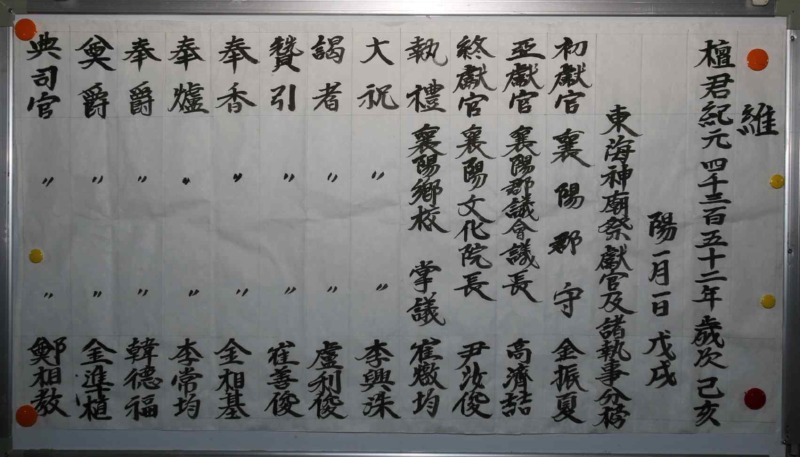 維
檀君紀元 四千三百五十二年 歲次 己亥
陽 一月一日 戊戌
東海神廟祭獻官及諸執事分榜
初獻官 襄陽郡守 金振夏
亞獻官 襄陽郡議會議長 高濟喆
終獻官 襄陽文化院長 尹汝俊
執禮 襄陽鄕校 掌議 崔燉均
大祝 〃 〃 李興洙
謁者 〃 〃 盧利俊
贊引 〃 〃 崔善俊
奉香 〃 〃 金相基
奉爐 〃 〃 李常均
奉爵 〃 〃 韓德福
奠爵 〃 〃 金準植
典司官 〃 〃 鄭相敎